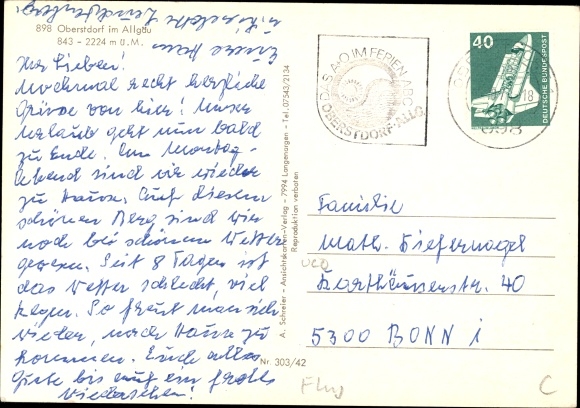 898 Oberstdorf im Allgäu
843 - 2224 m ü.M.
Ihr Lieben!
Nochmal recht herzliche
Grüsse von hier! Unser
Urlaub geht nun bald
zu Ende. Am Montag-
abend sind wir wieder
zu Hause. Auf diesem
schönen Berg sind wir
noch bei schönem Wetter
gewesen. Seit 8 Tagen ist
das Wetter schlecht, viel
Regen. So freut man sich
wieder, nach Hause zu
kommen. Euch alles
Gute bis auf ein frohes
Wiedersehen!
Eure
u. Lieselotte
A. Schreier - Ansichtskarten-Verlag - 7994 Langenargen - Tel. 07543/2134
Reproduktion verboten
Nr. 303/42
DAS A-O IM FERIEN ABC
OBERSTDORF
40
DEUTSCHE BUNDESPOST
18
898
Familie
Math. Kiefernagel
Karthäuserstr. 40
5300 BONN 1
Flug
C